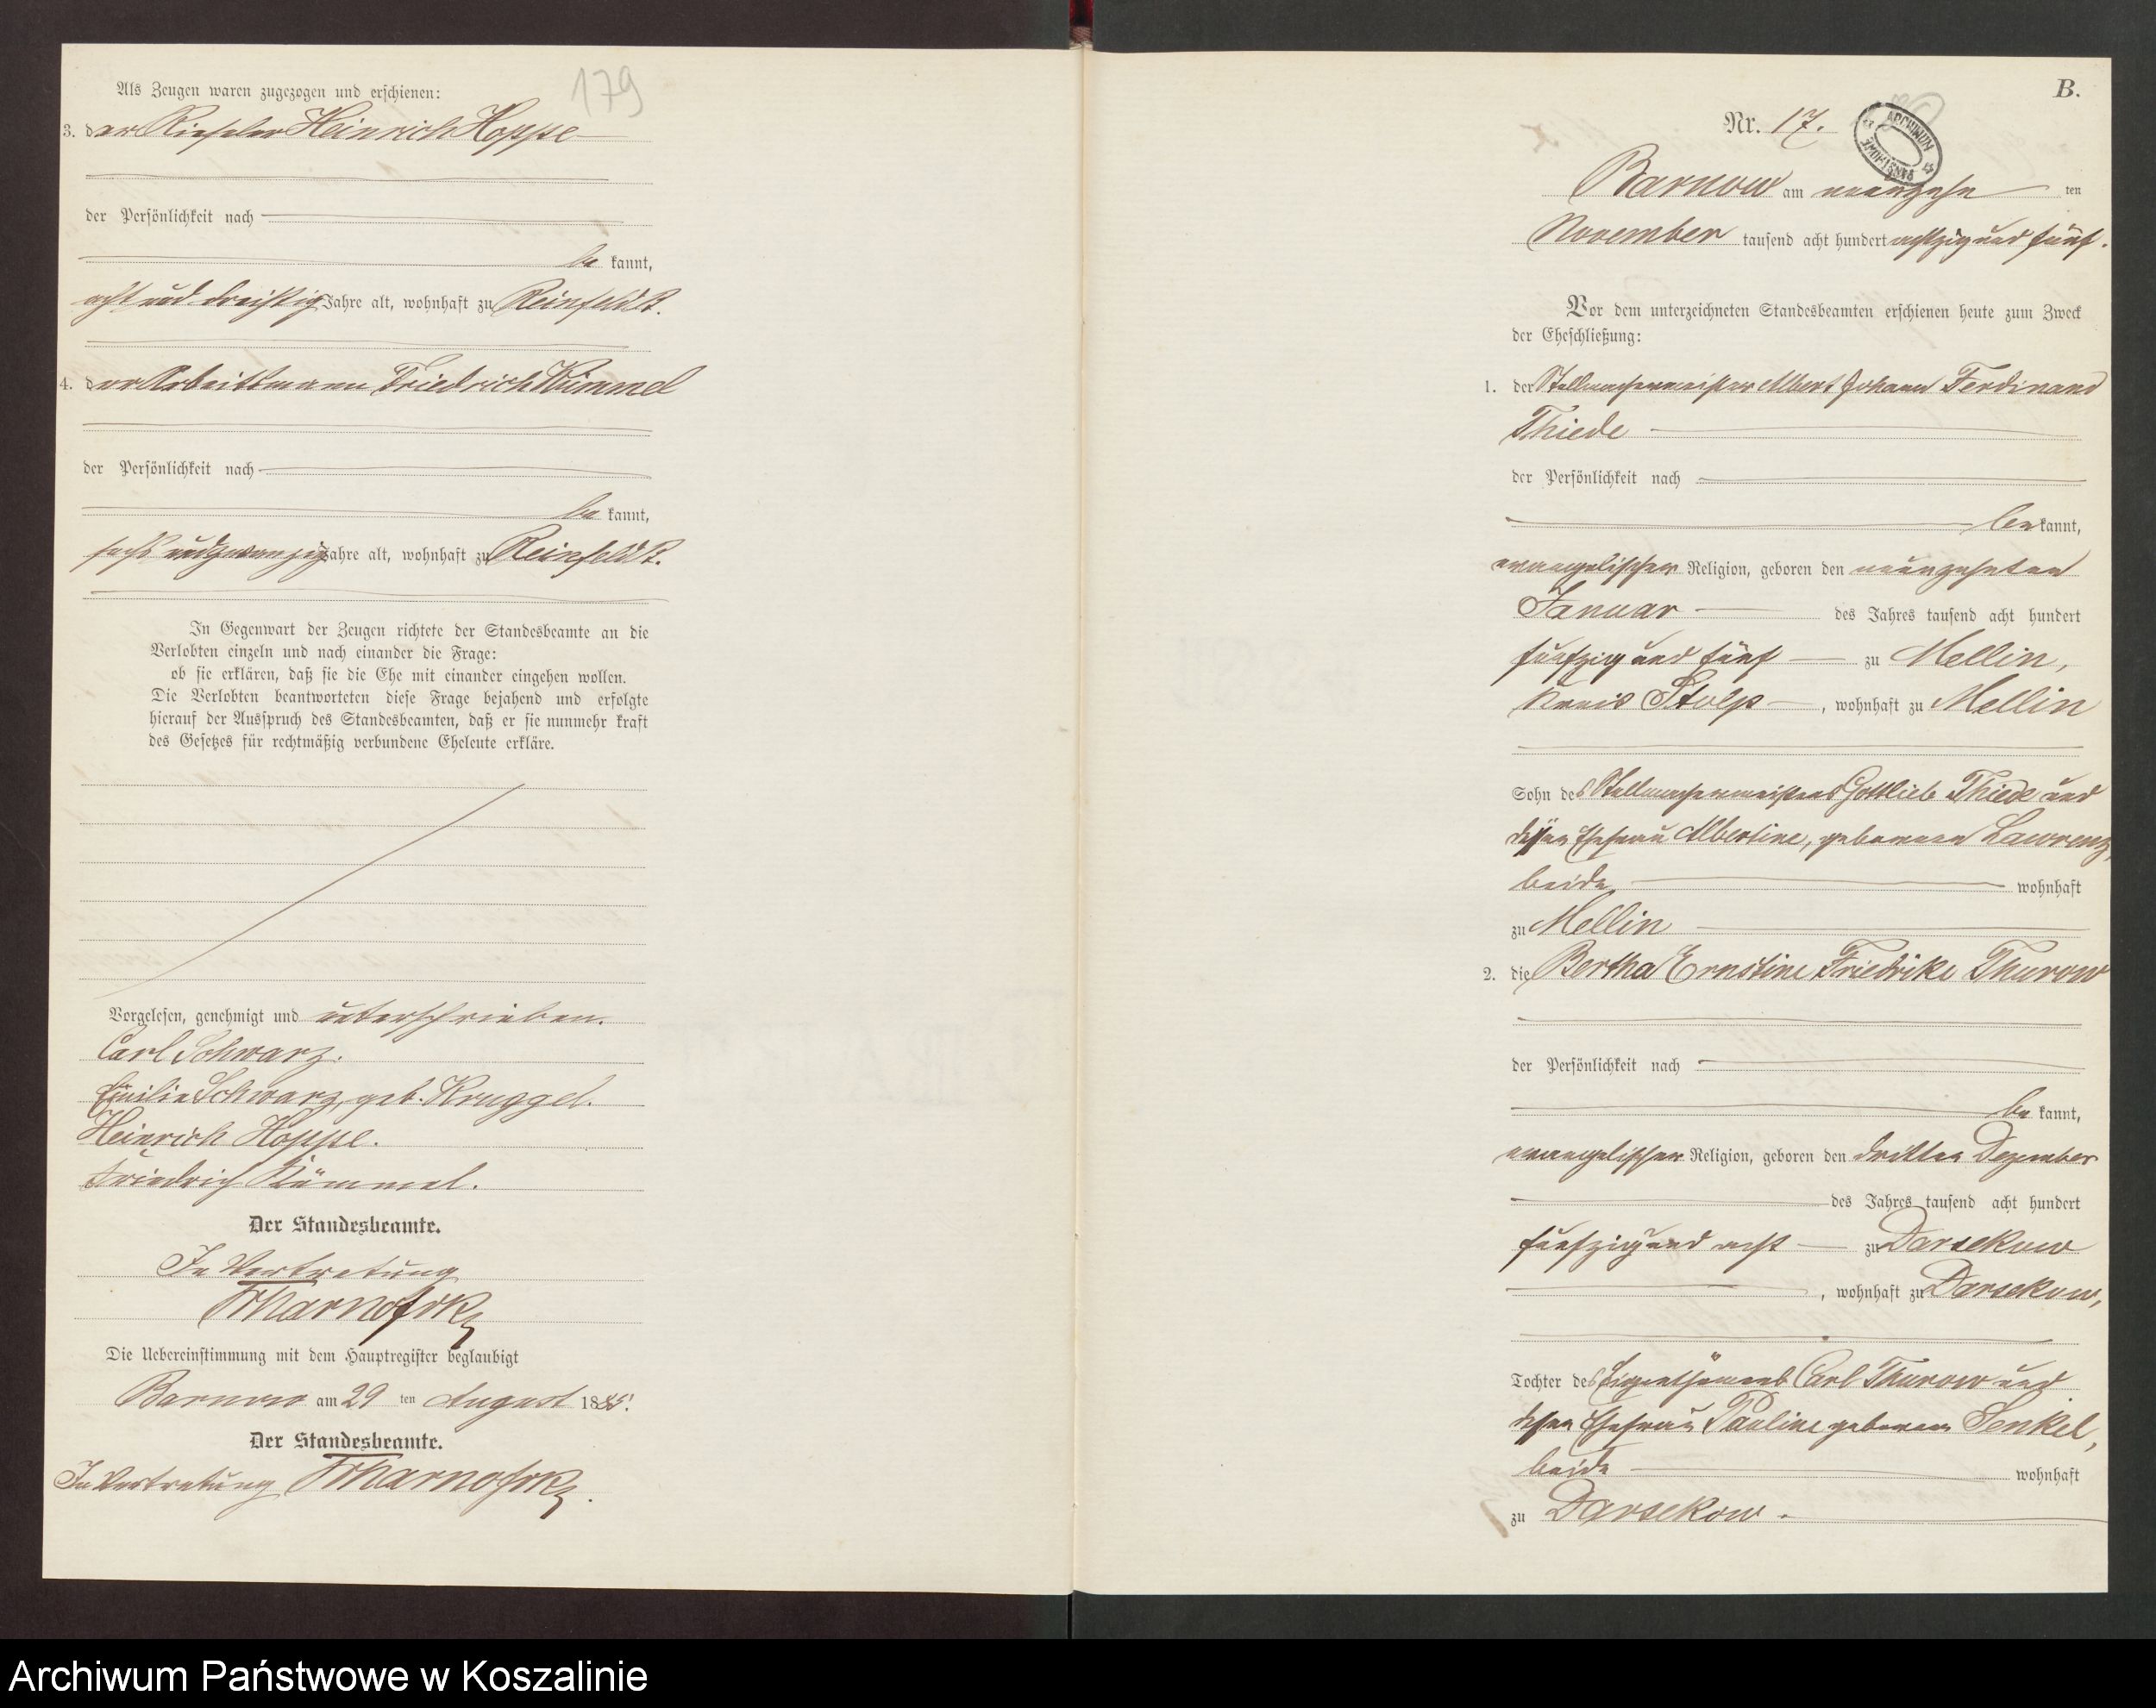 179
Als Zeugen waren zugezogen und erschienen:
3. der Rieseler Heinrich Hoppe
der Persönlichkeit nach
be kannt,
acht und dreißig Jahre alt, wohnhaft zu Reinfeldt.
4. der Arbeitsmann Friedrich Kümmel
der Persönlichkeit nach
be kannt,
sechs und zwanzig Jahre alt, wohnhaft zu Reinfeldt.
In Gegenwart der Zeugen richtete der Standesbeamte an die
Verlobten einzeln und nach einander die Frage:
ob sie erklären, daß sie die Ehe mit einander eingehen wollen.
Die Verlobten beantworteten diese Frage bejahend und erfolgte
hierauf der Ausspruch des Standesbeamten, daß er sie nunmehr kraft
des Gesetzes für rechtmäßig verbundene Eheleute erkläre.
Vorgelesen, genehmigt und unterschrieben.
Carl Schwarz.
Emilie Schwarz, geb. Kruggel.
Heinrich Hoppe.
Friedrich Kümmel.
Der Standesbeamte.
In Vertretung
Die Uebereinstimmung mit dem Hauptregister beglaubigt
Barnow am 29 ten August 1885.
Der Standesbeamte.
In Vertretung
B.
Nr. 17.
ARCHIWUM PAŃSTWOWE
Barnow am neunzehn ten
November tausend acht hundert achtzig und fünf.
Vor dem unterzeichneten Standesbeamten erschienen heute zum Zweck
der Eheschließung:
1. der Stellmachermeister Albert Johann Ferdinand
Thiede
der Persönlichkeit nach
be kannt,
evangelischer Religion, geboren den neunzehnten
Januar des Jahres tausend acht hundert
fünfzig und fünf zu Mellin,
Kreis Stolp, wohnhaft zu Mellin
Sohn des Stellmachermeisters Gottlieb Thiede und
dessen Ehefrau Albertine, geborenen Lawrenz,
beide wohnhaft
zu Mellin
2. die Bertha Ernstine Friedrike Thurow
der Persönlichkeit nach
be kannt,
evangelischer Religion, geboren den dritten Dezember
des Jahres tausend acht hundert
fünfzig und acht zu Darsekow
, wohnhaft zu Darsekow,
Tochter des Eigenthümers Carl Thurow und
dessen Ehefrau Pauline geborenen Senkel,
beide wohnhaft
zu Darsekow.
Archiwum Państwowe w Koszalinie